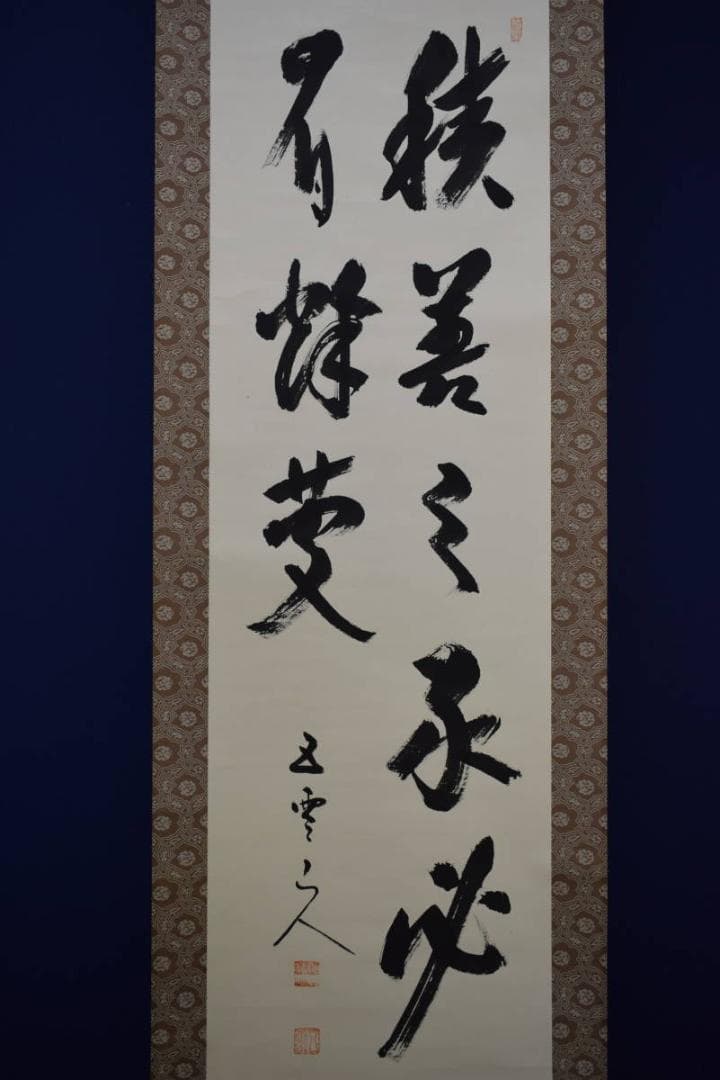 積善之家必
有餘慶
五雲山人